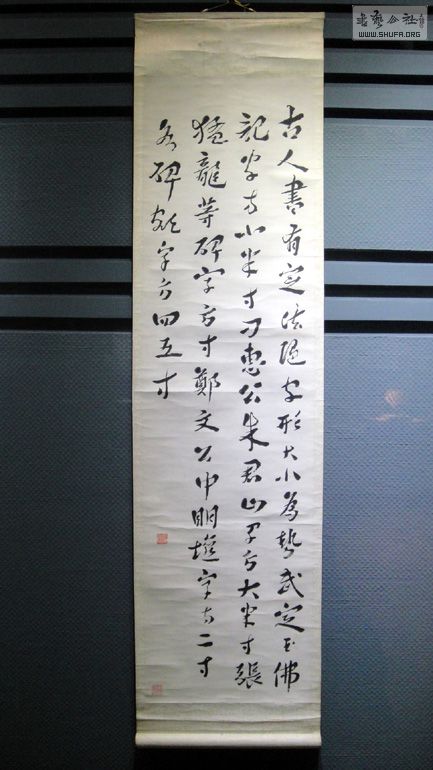 古人書有定法隨字形大小為勢武定玉佛
記字方小半寸刁惠公朱君山字方大半寸張
猛龍等碑字方寸鄭文公中明壇字方二寸
各碑額字方四五寸
書藝公社
WWW.SHUFA.ORG